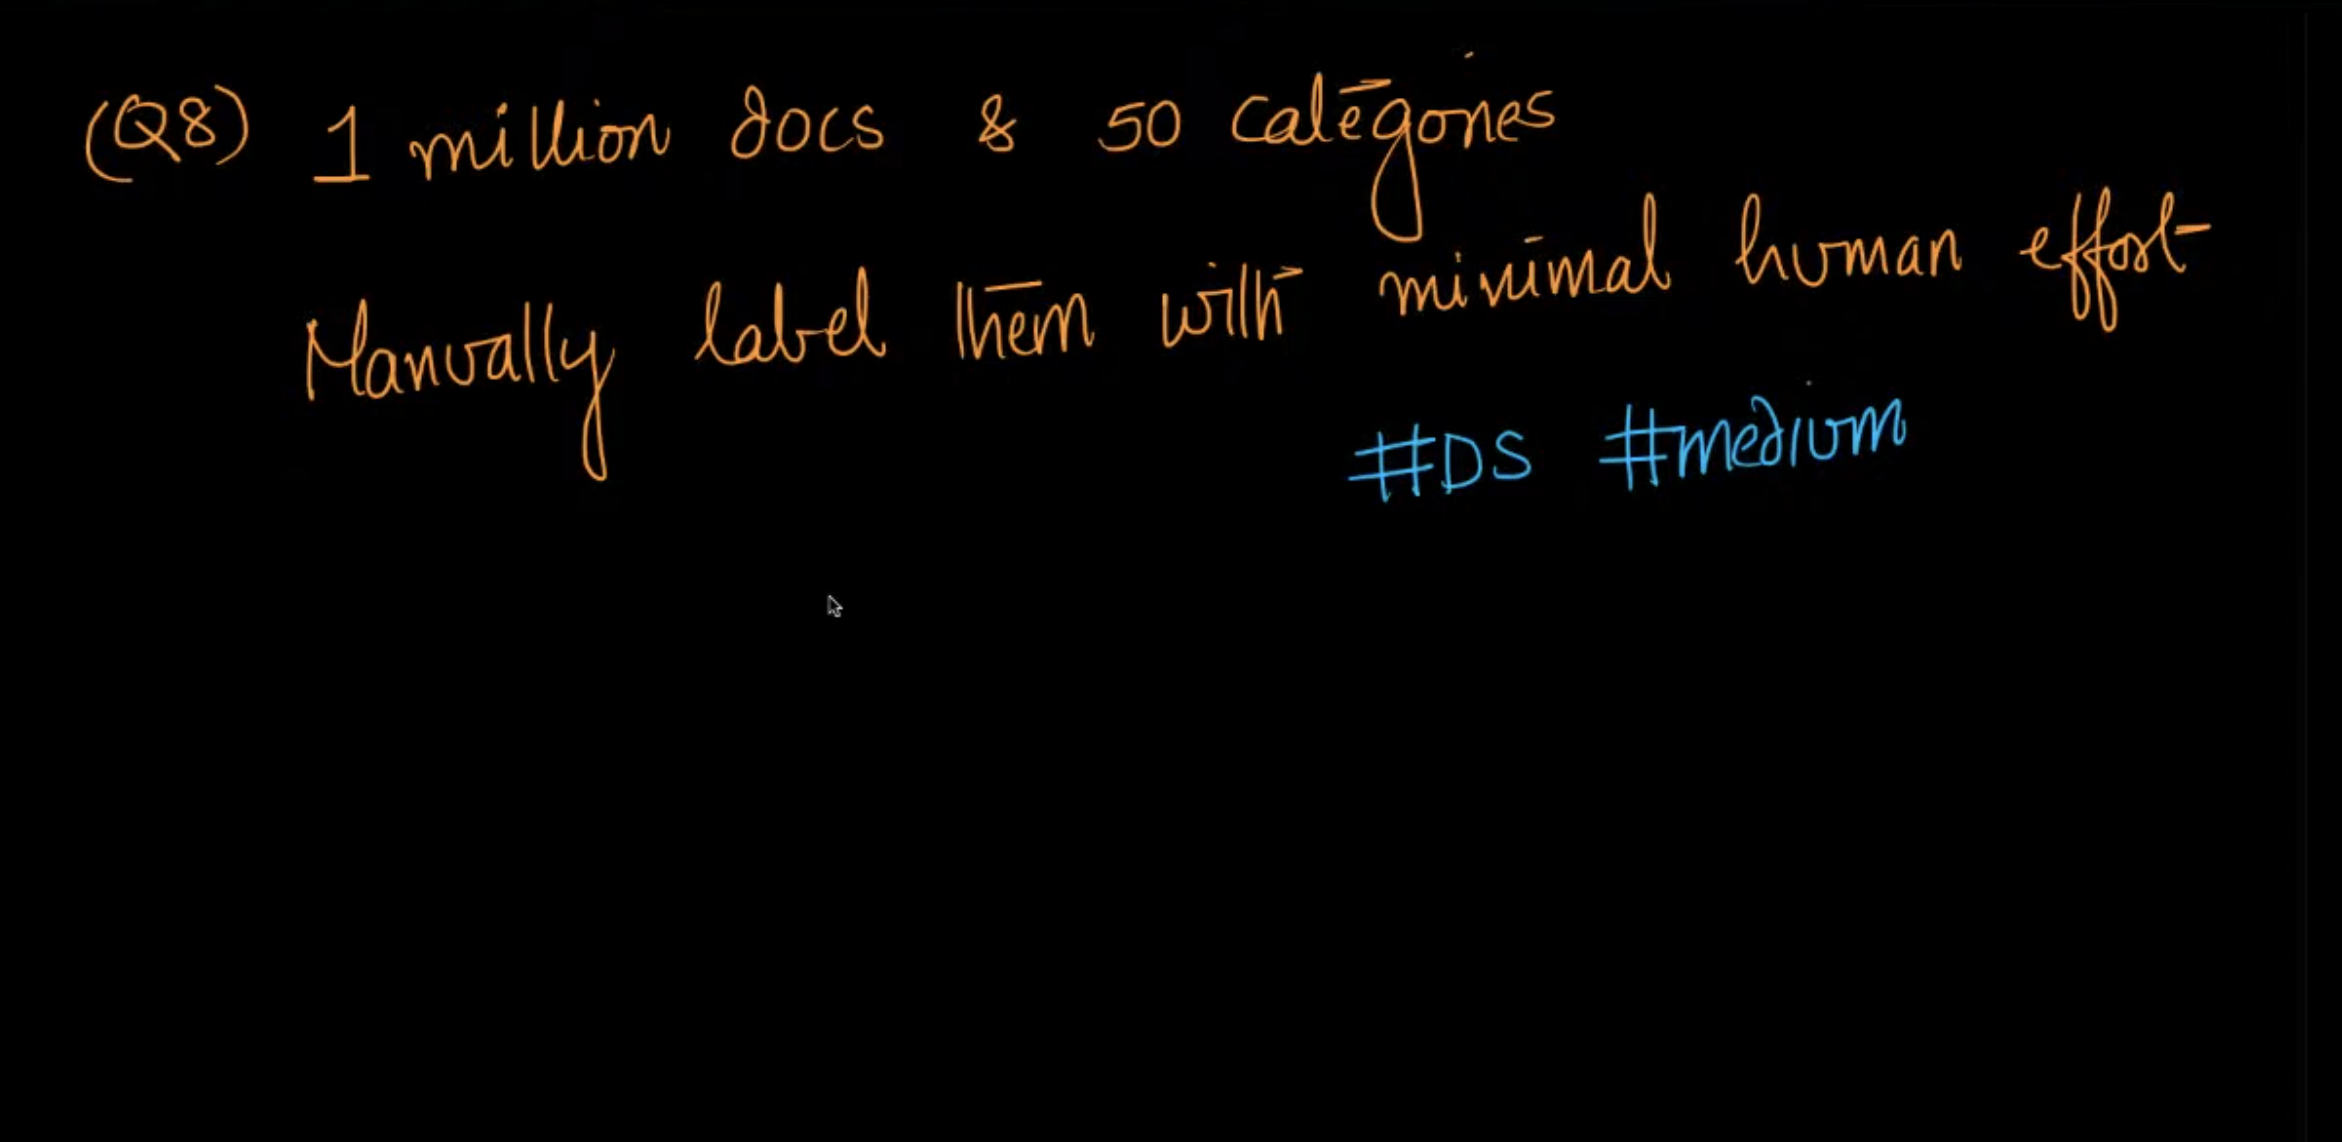 (Q8) 1 million docs & 50 categories
Manually label them with minimal human effort
#DS #medium